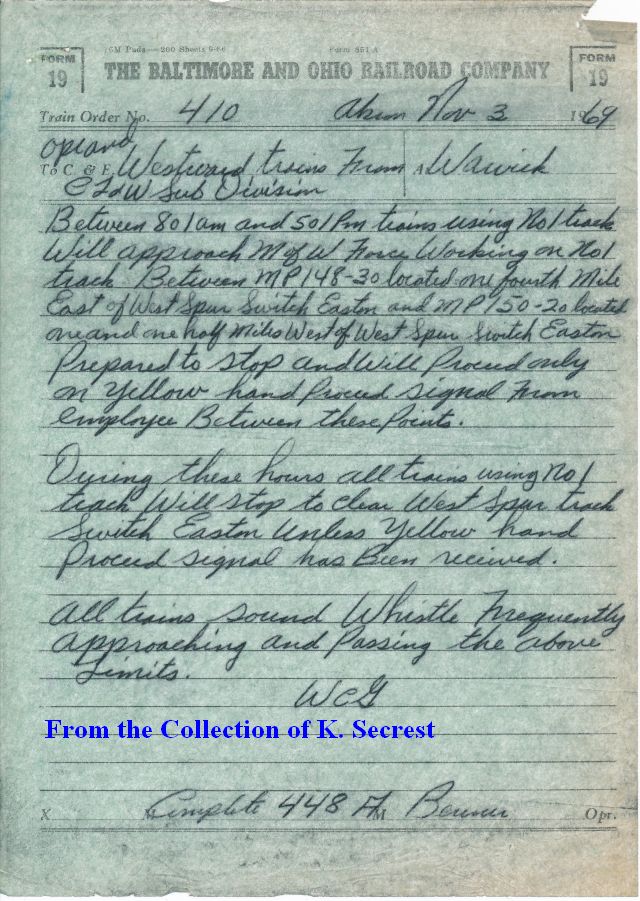 5M Pads—200 Sheets 9-66 Form 851 A
FORM 19 THE BALTIMORE AND OHIO RAILROAD COMPANY FORM 19
Train Order No. 410 Akron Nov 3 1969
Opr and
To C. & E. Westward trains From At Warwick
CL&W Sub Division
Between 801am and 501Pm trains using No 1 track
Will approach M of W Force Working on No1
track Between MP148-30 located one fourth Mile
East of West Spur Switch Easton and MP150-20 located
one and one half Miles West of West Spur Switch Easton
Prepared to stop and Will Proceed only
on Yellow hand Proceed signal From
employee Between these Points.
During these hours all trains using No 1
track Will stop to clear West Spur track
Switch Easton Unless Yellow hand
Proceed signal has Been received.
All trains sound Whistle Frequently
approaching and Passing the above
Limits.
WCG
From the Collection of K. Secrest
X M Complete 448 A M Opr.